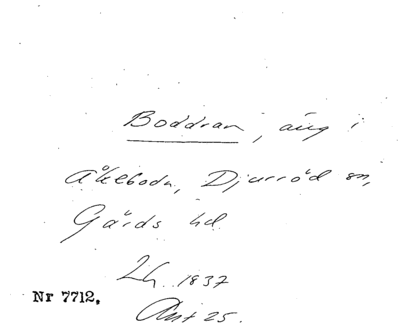 Boddran, äng i
Åkeboda, Djurröd sn,
Gärds hd.
Lh. 1837
Akt 25.
Nr 7712.